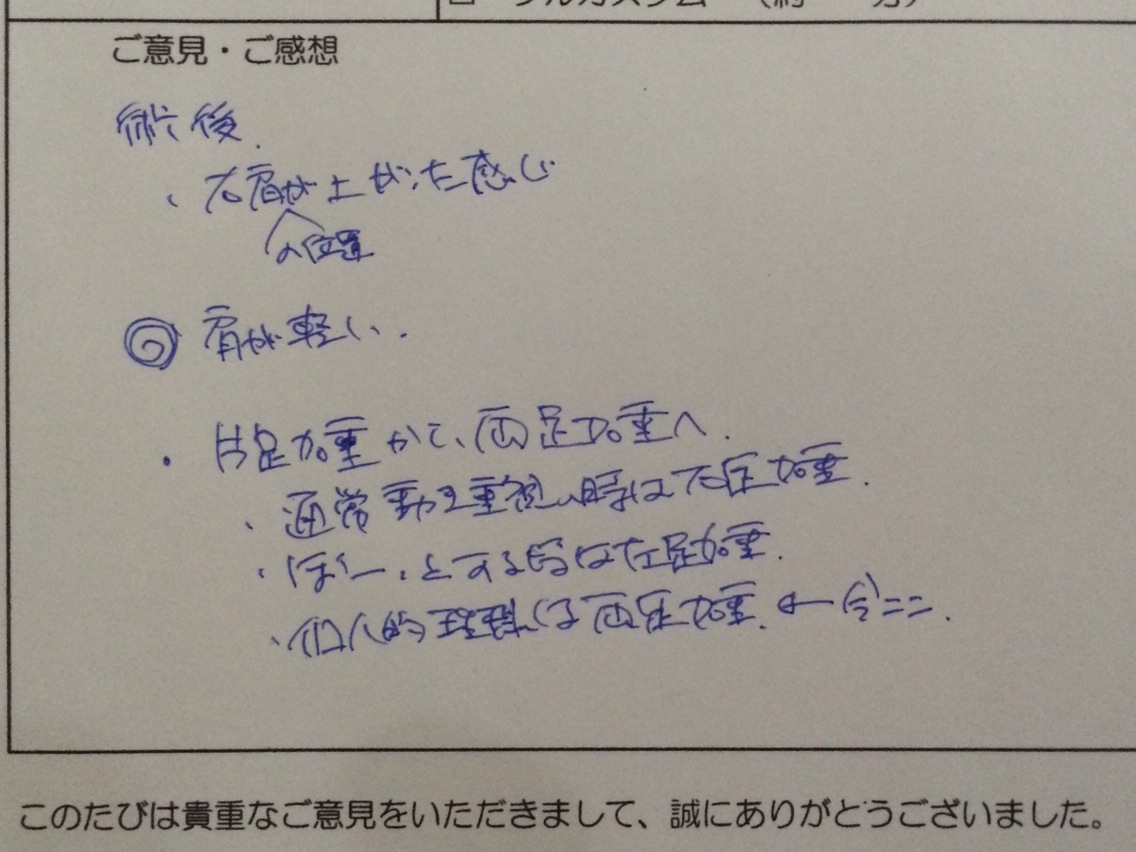 フルカスタム （約　　分）
ご意見・ご感想
術後.
、右肩が上がった感じ
の位置
◎ 肩が軽い.
・片足加重から、両足加重へ.
・通常動を重視の時は右足加重.
・ぼーっとする時は左足加重.
・個人的理想は両足加重. ← 今ココ.
このたびは貴重なご意見をいただきまして、誠にありがとうございました。